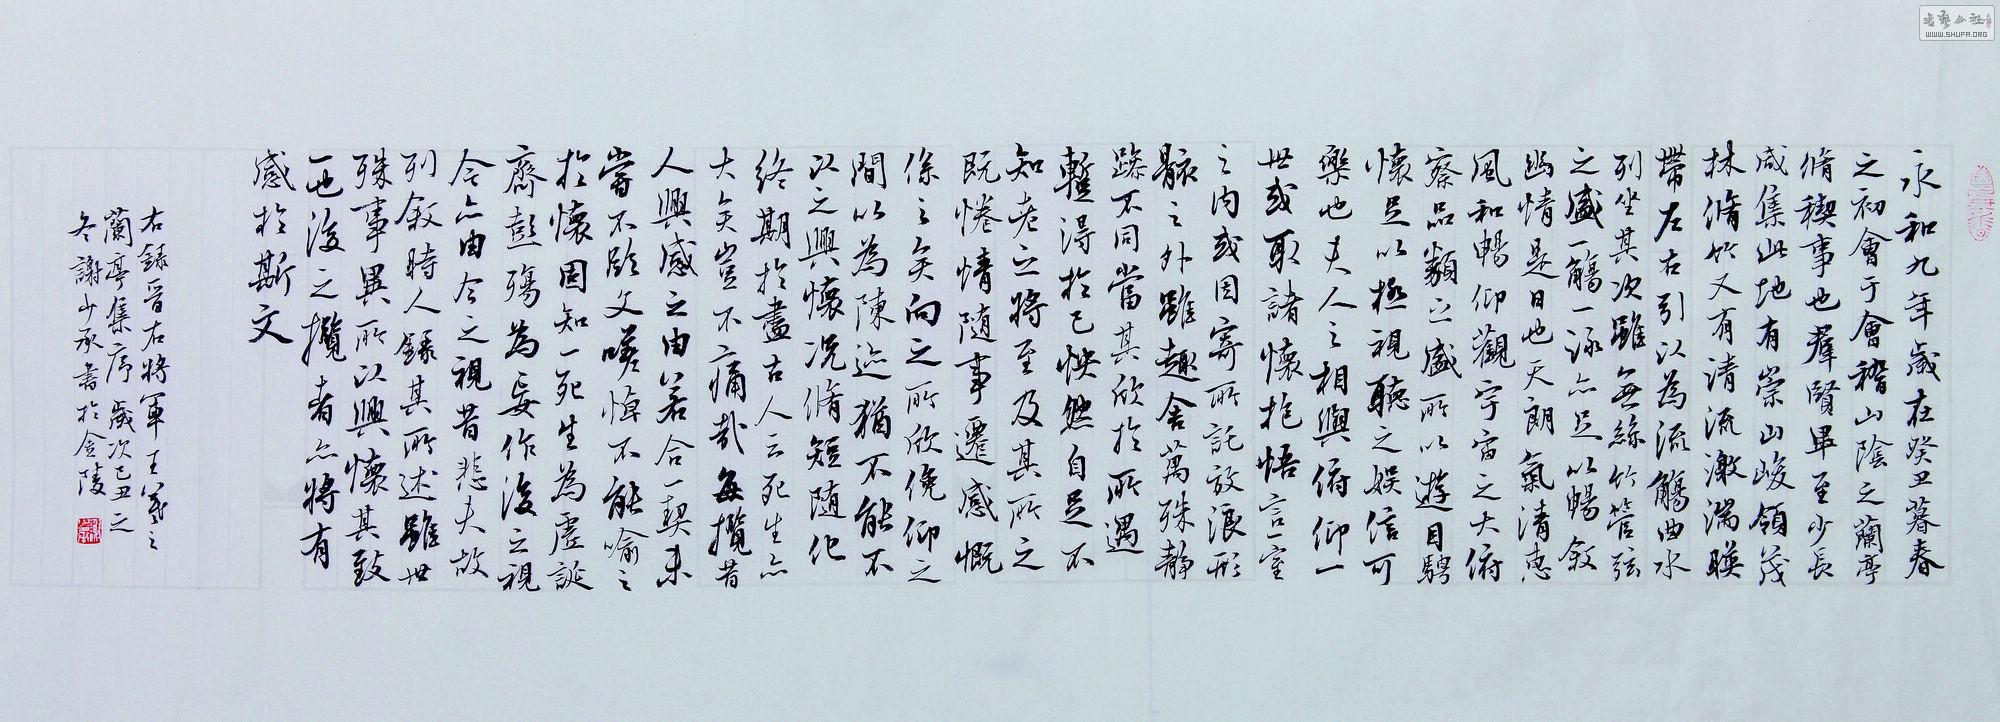 永和九年歲在癸丑暮春
之初會于會稽山陰之蘭亭
脩禊事也羣賢畢至少長
咸集此地有崇山峻領茂
林脩竹又有清流激湍暎
帶左右引以為流觴曲水
列坐其次雖無絲竹管弦
之盛一觴一詠亦足以暢敘
幽情是日也天朗氣清惠
風和暢仰觀宇宙之大俯
察品類之盛所以遊目騁
懷足以極視聽之娛信可
樂也夫人之相與俯仰一
世或取諸懷抱悟言一室
之內或因寄所託放浪形
骸之外雖趣舍萬殊靜
躁不同當其欣於所遇
暫得於己怏然自足不
知老之將至及其所之
既惓情隨事遷感慨
係之矣向之所欣俛仰之
間以為陳迹猶不能不
以之興懷況脩短隨化
終期於盡古人云死生亦
大矣豈不痛哉每攬昔
人興感之由若合一契未
嘗不臨文嗟悼不能喻之
於懷固知一死生為虛誕
齊彭殤為妄作後之視
今亦由今之視昔悲夫故
列敘時人錄其所述雖世
殊事異所以興懷其致
一也後之攬者亦將有
感於斯文
右錄晉右將軍王羲之
蘭亭集序歲次己丑之
冬謝少承書於金陵
書藝公社
WWW.SHUFA.ORG